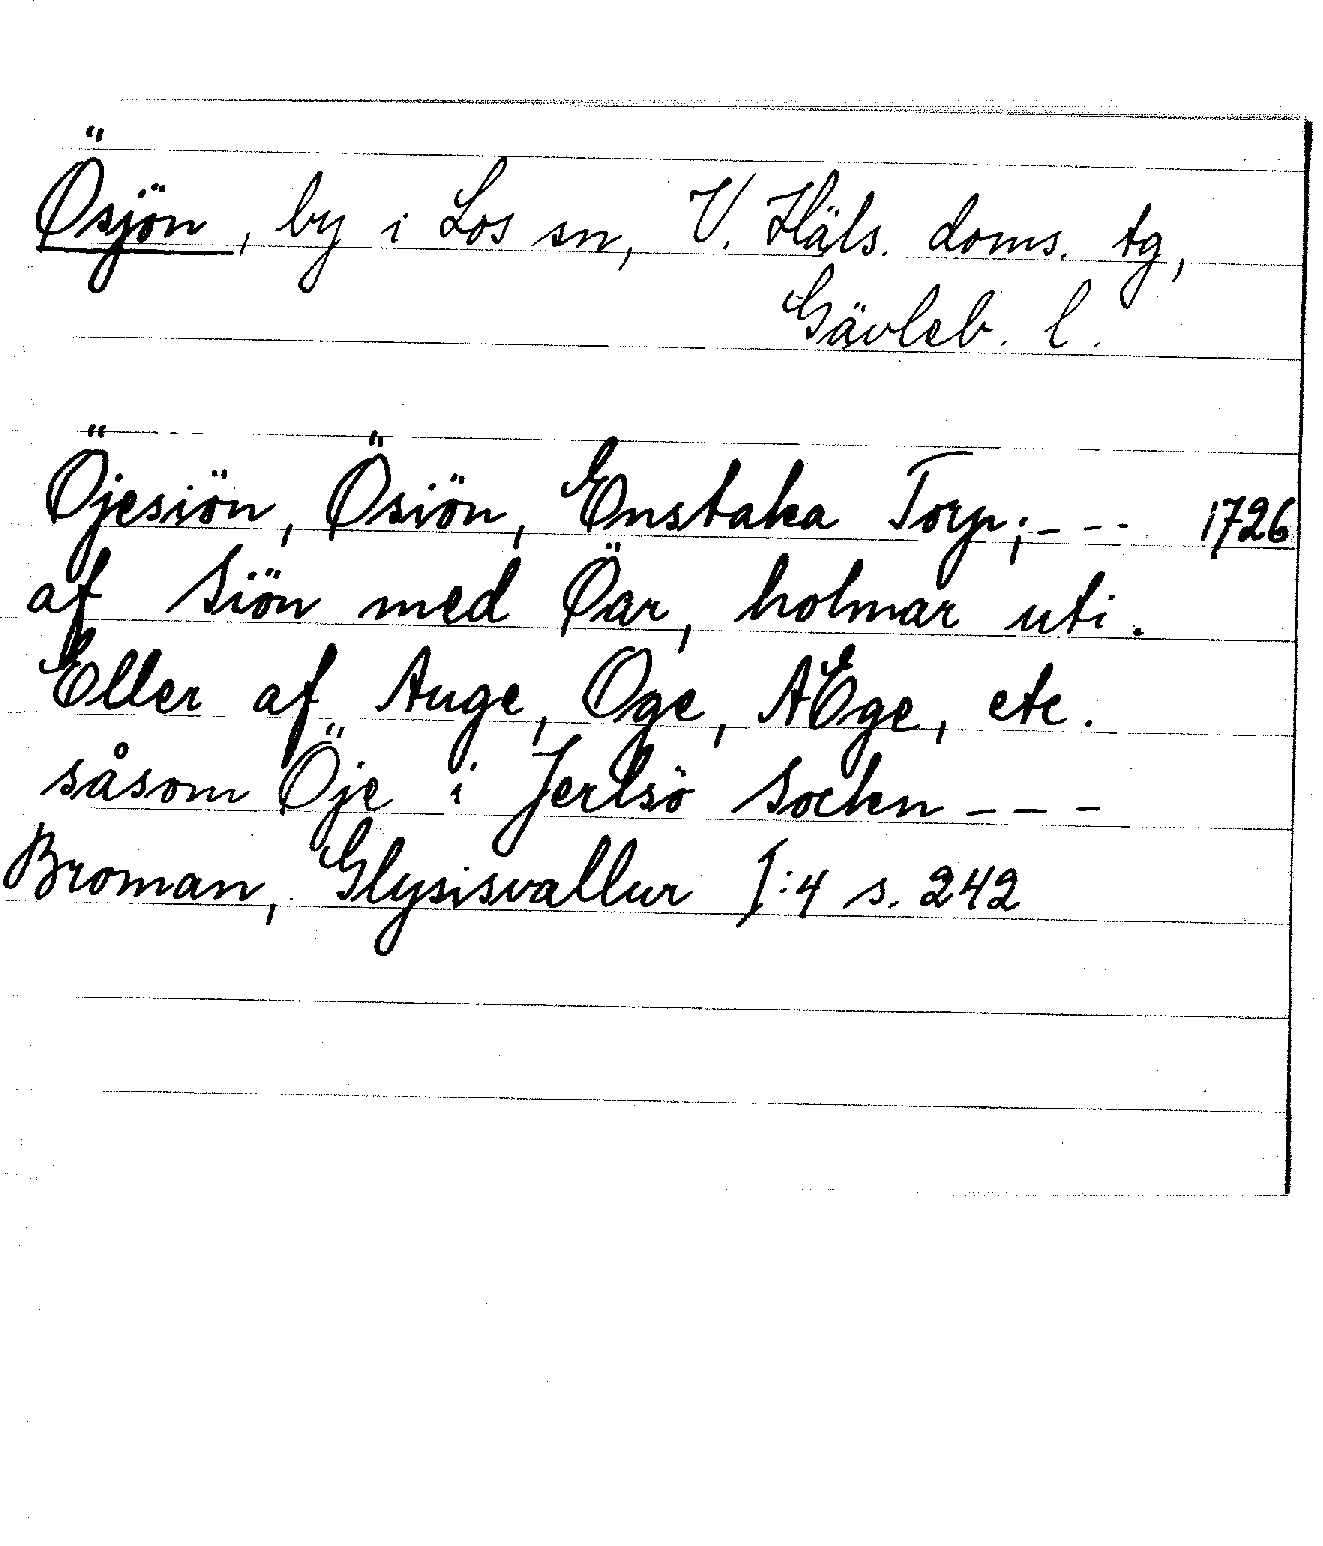 Ösjön, by i Los sn, V. Häls. doms. tg,
Gävleb. l.
Öjesiön, Ösiön, Enstaka Torp; - - - 1726
af Siön med Öar, holmar uti.
Eller af Auge, Oge, AEge, etc.
såsom Öje i Jerlsö Socken - - -
Broman, Glysisvallur I:4 s. 242